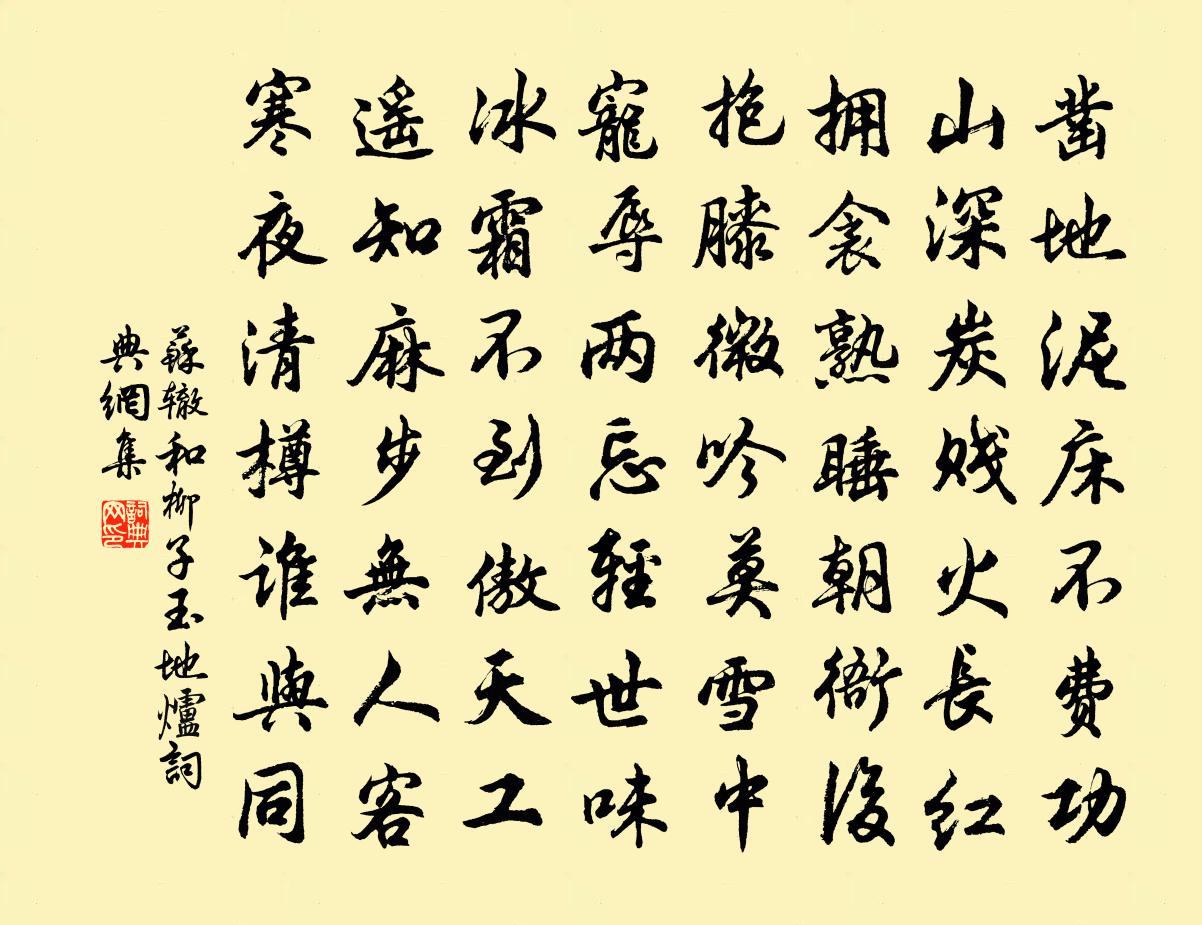 凿地泥床不费功
山深炭贱火长红
拥衾熟睡朝衙后
抱膝微吟莫雪中
宠辱两忘轻世味
冰霜不到傲天工
遥知麻步无人客
寒夜清樽谁与同
苏辙和柳子玉地炉词
典网集
词典网印